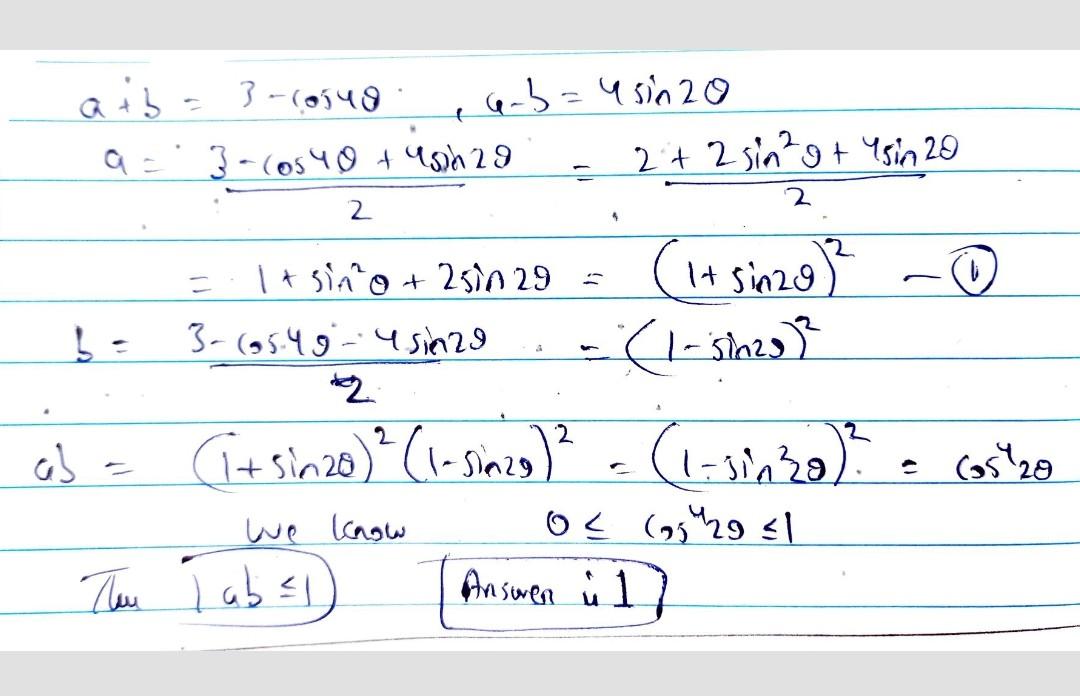 a+b = 3-cos4θ , a-b = 4 sin2θ
a = 3-cos4θ + 4sin2θ / 2 = 2 + 2 sin²θ + 4sin2θ / 2
= 1 + sin²θ + 2sin2θ = (1+ sin2θ)² - ①
b = 3-cos4θ - 4sin2θ / 2 = (1-sin2θ)²
ab = (1+sin2θ)² (1-sin2θ)² = (1-sin²2θ)² = cos⁴2θ
We know 0 ≤ cos⁴2θ ≤1
Thu ab ≤1 Answer is 1